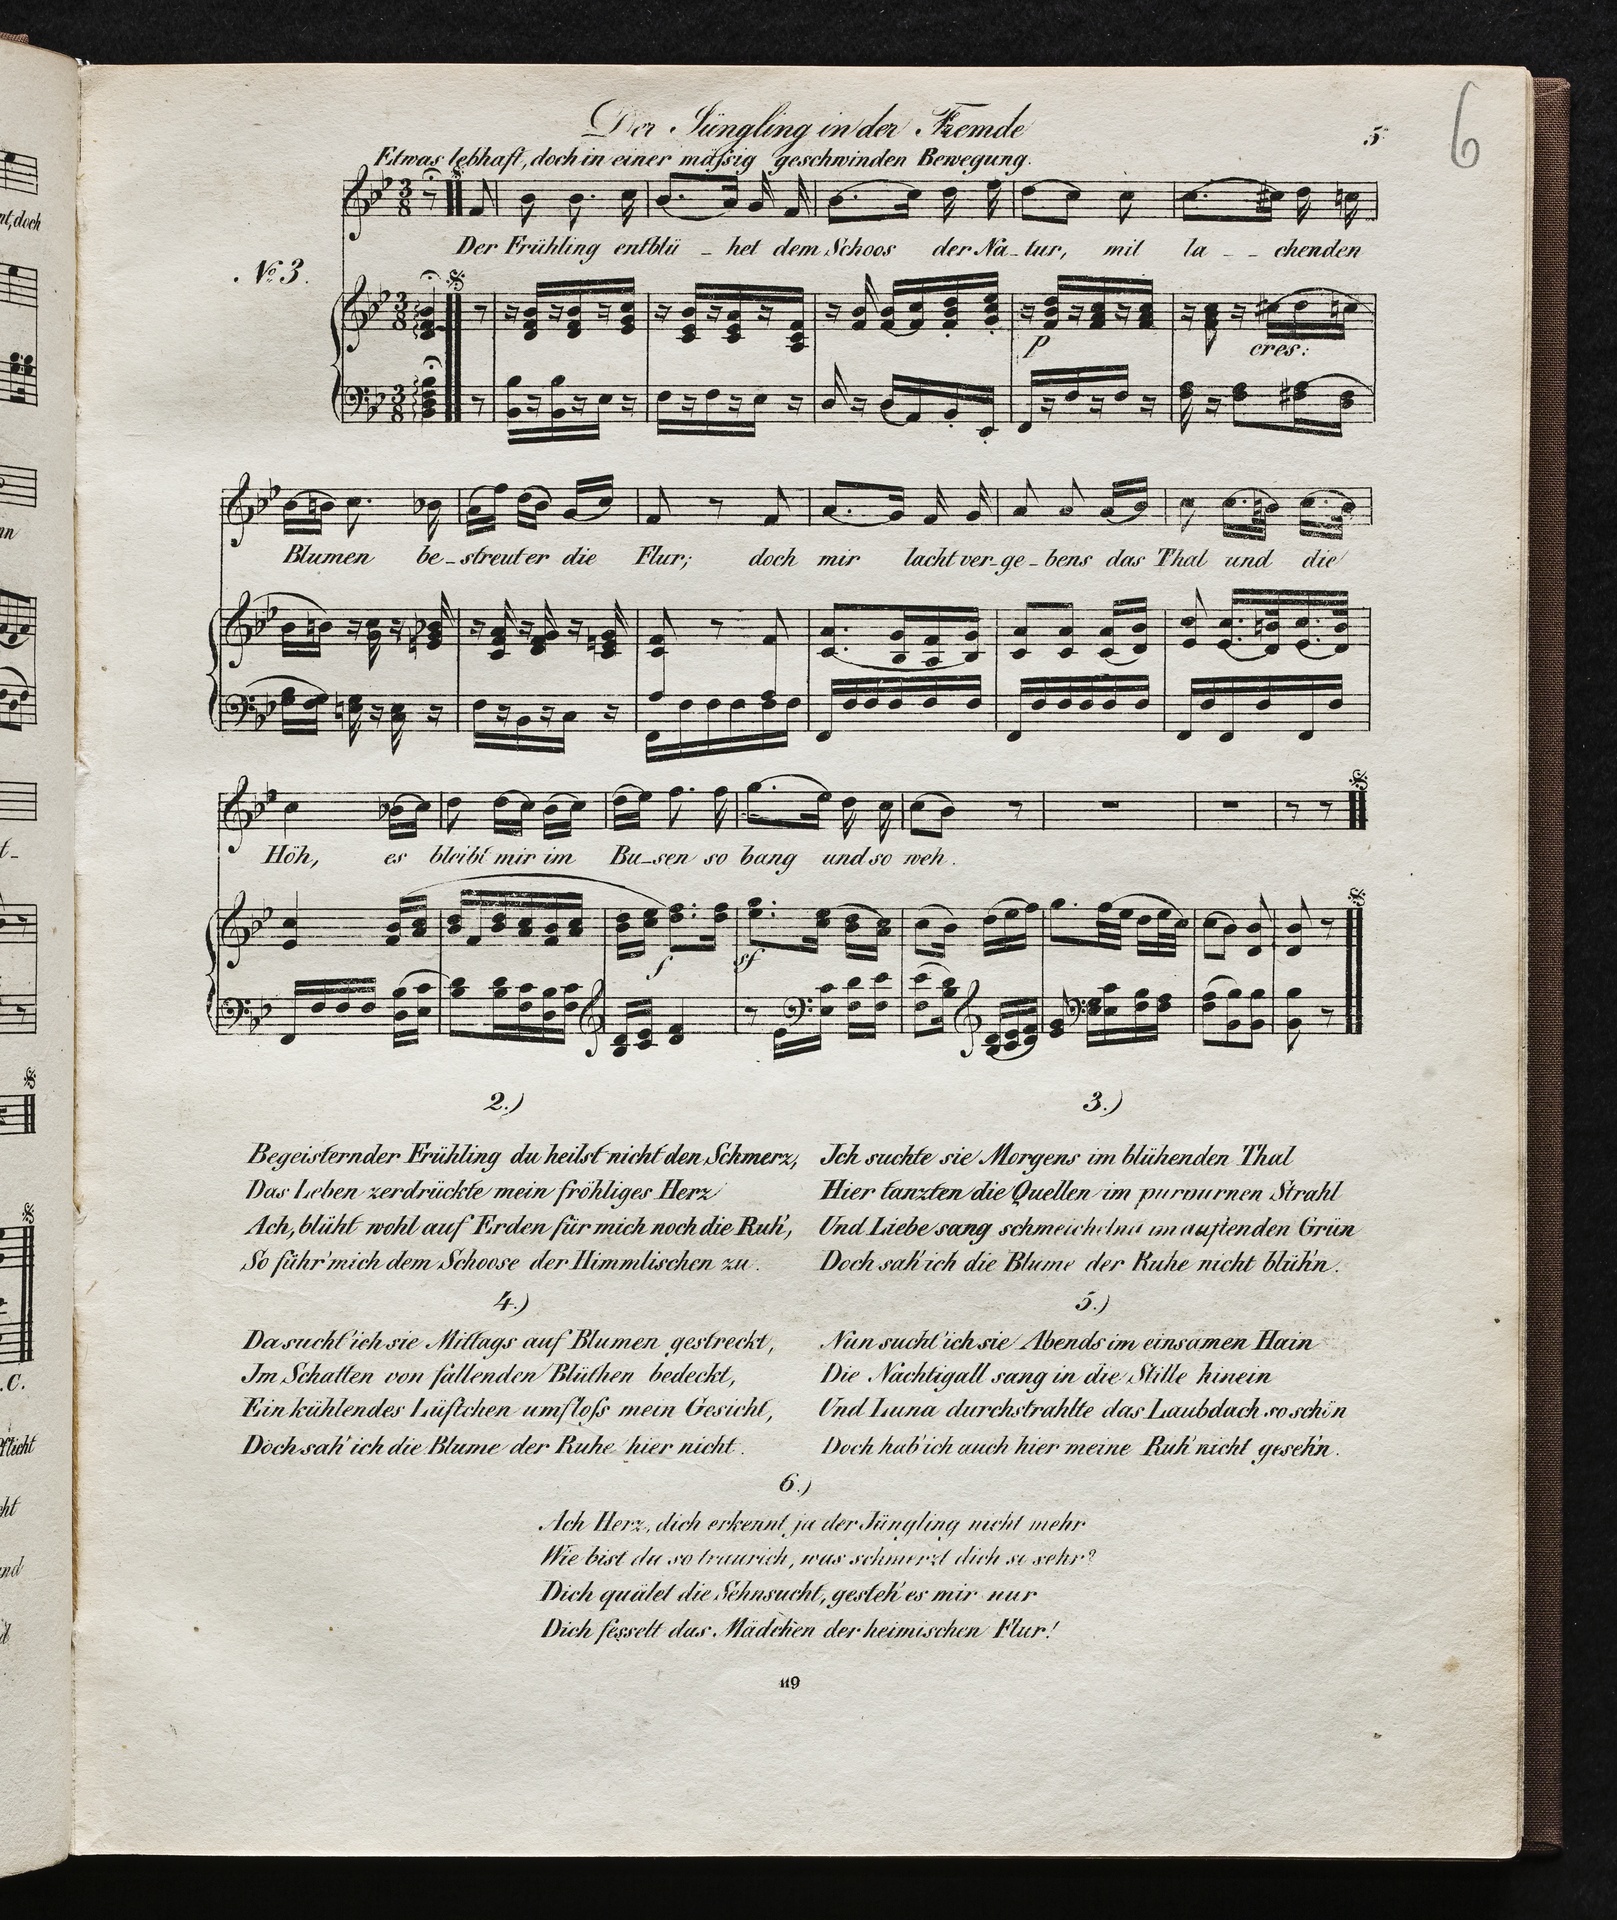 Der Jüngling in der Fremde
5.
6
Etwas lebhaft, doch in einer mässig geschwinden Bewegung.
nt, doch
No. 3.
Der Frühling entblü - het dem Schoos der Na - tur, mit la - - chenden
p cres:
nn
Blumen be - streut er die Flur; doch mir lacht ver - ge - bens das Thal und die
t -
Höh, es bleibt mir im Bu - sen so bang und so weh.
f sf
2.)
Begeisternder Frühling du heilst nicht den Schmerz,
Das Leben zerdrückte mein fröhliges Herz
Ach, blüht wohl auf Erden für mich noch die Ruh',
So führ' mich dem Schoose der Himmlischen zu.
3.)
Ich suchte sie Morgens im blühenden Thal
Hier tanzten die Quellen im purpurnen Strahl
Und Liebe sang schmeichelnd im duftenden Grün
Doch sah' ich die Blume der Ruhe nicht blüh'n.
4.)
Da sucht' ich sie Mittags auf Blumen gestreckt,
Im Schatten von fallenden Blüthen bedeckt,
Ein kühlendes Lüftchen umfloss mein Gesicht,
Doch sah' ich die Blume der Ruhe hier nicht.
5.)
Nun sucht' ich sie Abends im einsamen Hain
Die Nachtigall sang in die Stille hinein
Und Luna durchstrahlte das Laubdach so schön
Doch hab' ich auch hier meine Ruh' nicht geseh'n.
6.)
Ach Herz, dich erkennt ja der Jüngling nicht mehr
Wie bist du so traurich, was schmerzt dich so sehr?
Dich quälet die Sehnsucht, gesteh' es mir nur
Dich fesselt das Mädchen der heimischen Flur!
119
.C.
flicht
cht
and
d.